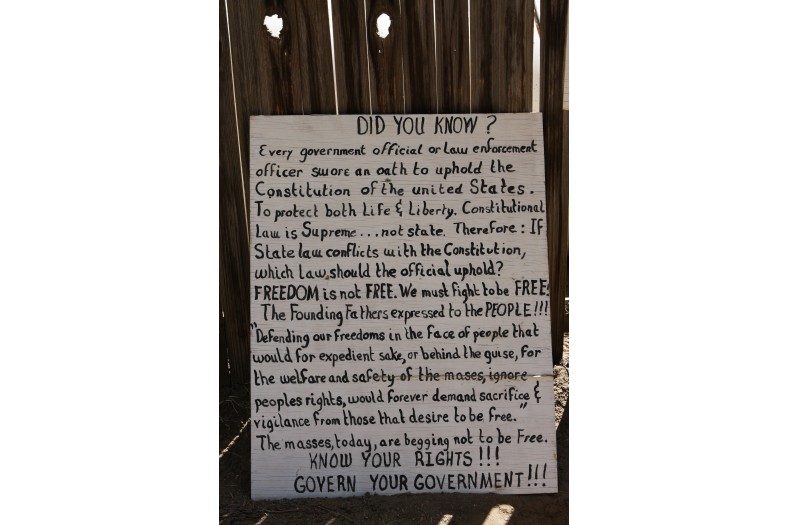 DID YOU KNOW ?
Every government official or law enforcement
officer swore an oath to uphold the
Constitution of the united States.
To protect both Life & Liberty. Constitutional
Law is Supreme...not state. Therefore: If
State law conflicts with the Constitution,
which law, should the official uphold?
FREEDOM is not FREE. We must fight to be FREE!
The Founding Fathers expressed to the PEOPLE!!!
"Defending our freedoms in the face of people that
would for expedient sake, or behind the guise, for
the welfare and safety of the mases, ignore
peoples rights, would forever demand sacrifice &
vigilance from those that desire to be free."
The masses, today, are begging not to be Free.
KNOW YOUR RIGHTS!!!
GOVERN YOUR GOVERNMENT!!!